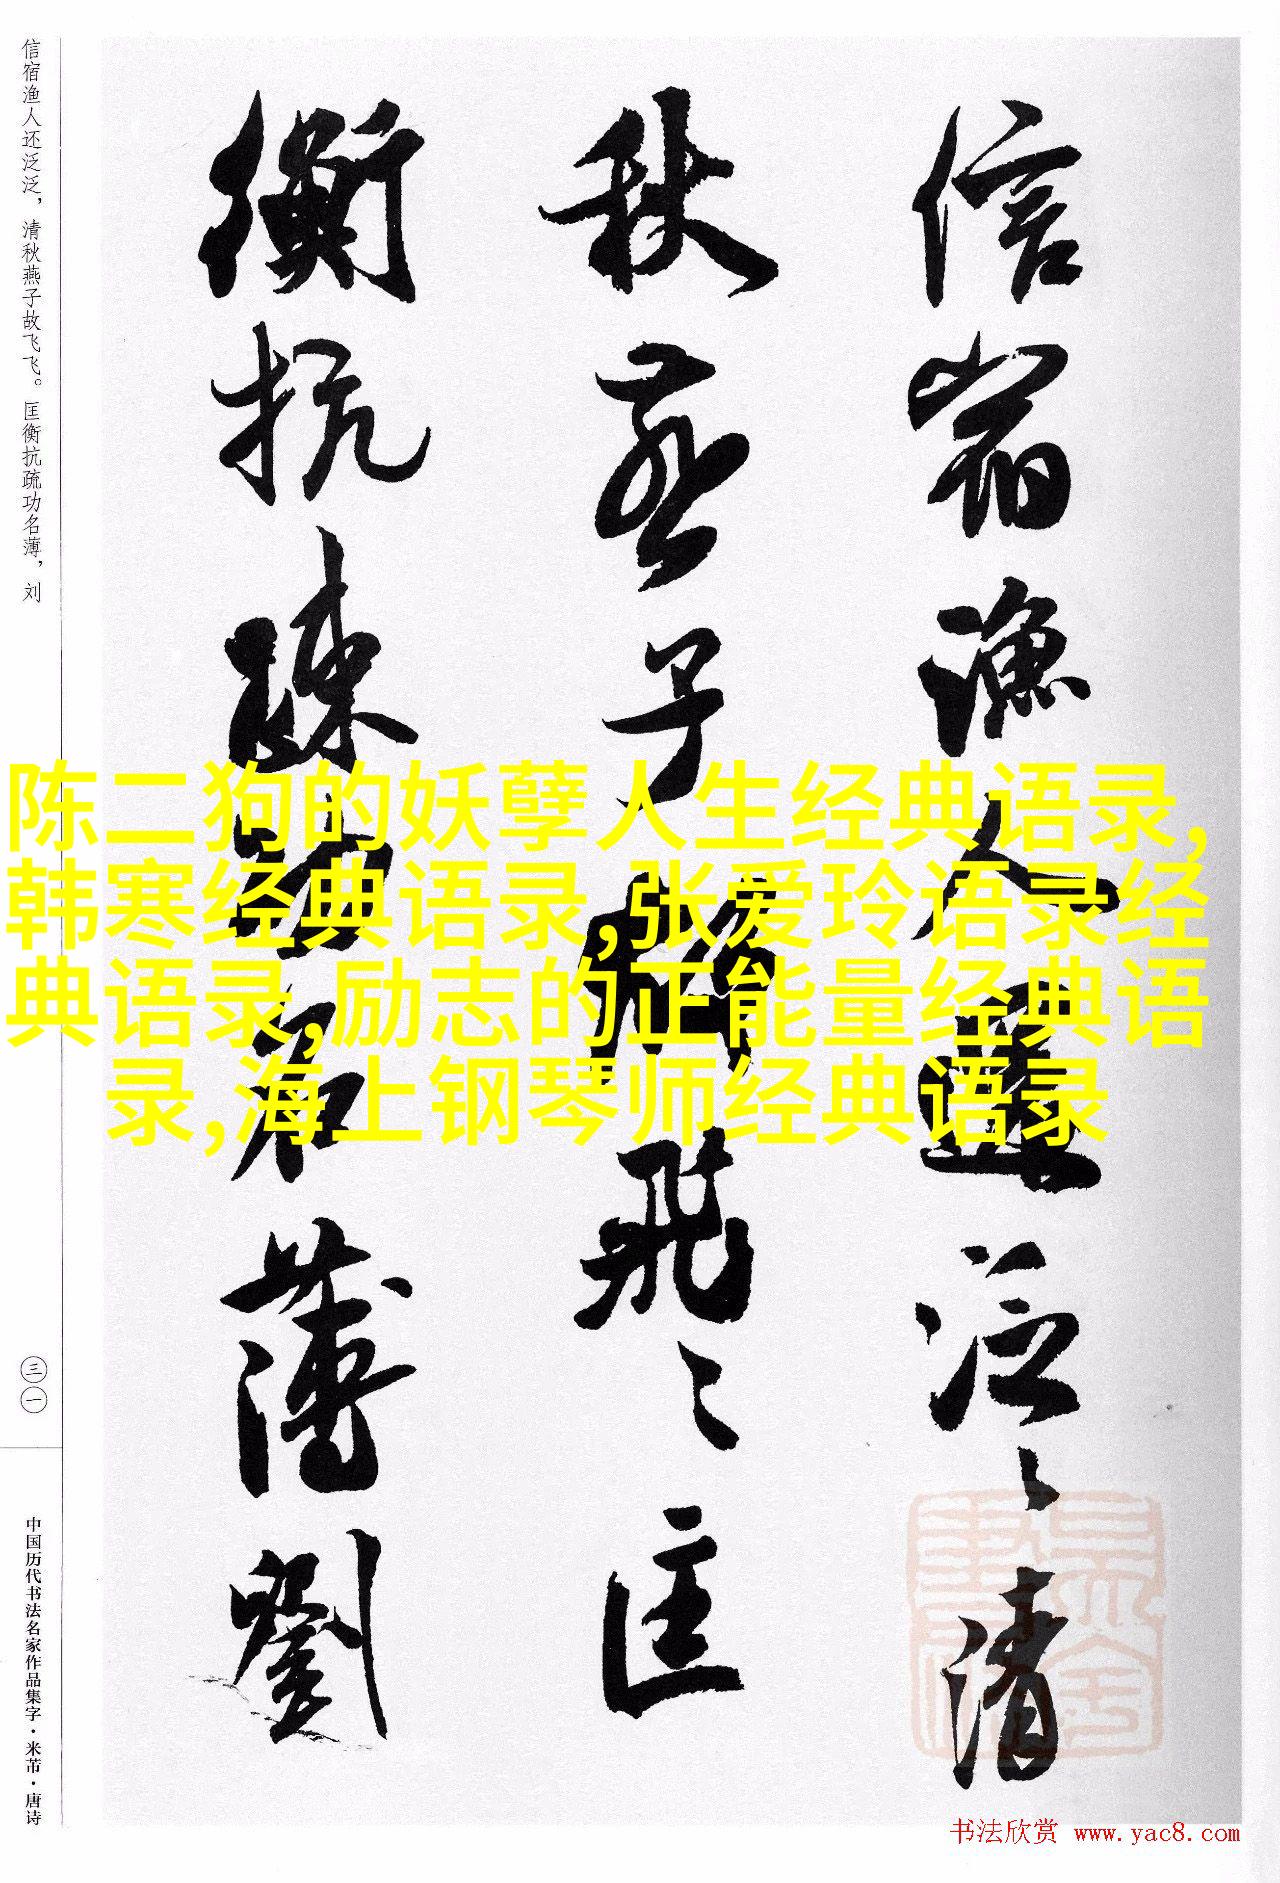 信宿渔人还泛泛，清秋燕子故飞飞。匡衡抗疏功名薄，刘
信宿漁人還泛〻清
秋燕子故飛〻匡
衡抗疏功名薄劉
陈二狗的妖孽人生经典语录,
韩寒经典语录,张爱玲语录经
典语录,励志的正能量经典语
录,海上钢琴师经典语录
三一
中国历代书法名家作品集字·米芾·唐诗
书法欣赏 www.yac8.com